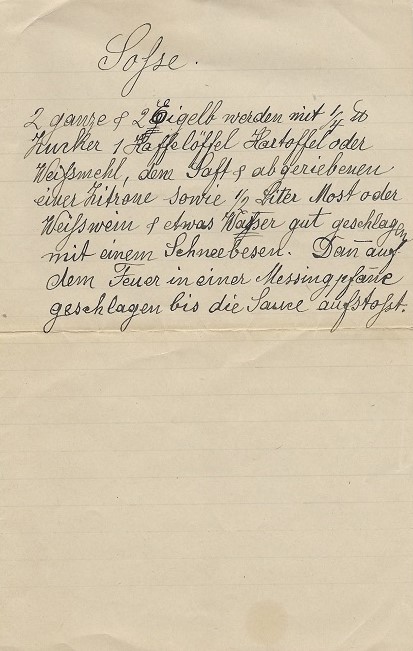 Sosse.
2 ganze & 2 Eigelb werden mit 1/4 ℔
Zucker 1 Kaffelöffel Kartoffel oder
Weißmehl, dem Saft & abgeriebenen
einer Zitrone sowie 1/2 Liter Most oder
Weißwein & etwas Wasser gut geschlagen
mit einem Schneebesen. Dan̄ auf
dem Feuer in einer Messingpfan̄e
geschlagen bis die Sauce aufstosst.